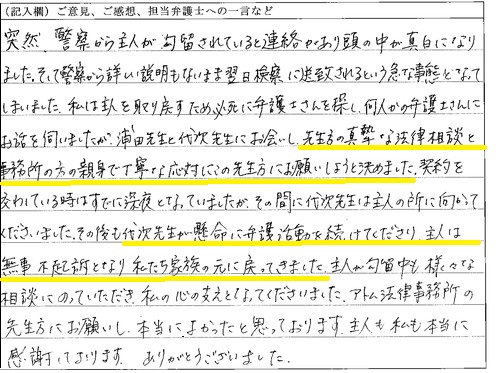 （記入欄）ご意見、ご感想、担当弁護士への一言など
突然、警察から主人が勾留されていると連絡があり頭の中が真白になり
ました。そして警察から詳しい説明もないまま翌日検察に送致されるという急な事態となって
しまいました。私は主人を取り戻すため必死に弁護士さんを探し、何人かの弁護士さんに
お話を伺いましたが、浦田先生と代次先生にお会いし、先生方の真摯な法律相談と
事務所の方の親身で丁寧な応対にこの先生方にお願いしようと決めました。契約を
交わしている時はすでに深夜となっていましたが、その間に代次先生は主人の所に向かって
くださいました。その後も代次先生が懸命に弁護活動を続けてくださり、主人は
無事 不起訴となり私たち家族の元に戻ってきました。主人が勾留中も様々な
相談にのっていただき、私の心の支えとなってくださいました。アトム法律事務所の
先生方にお願いし、本当によかったと思っております。主人も私も本当に
感謝しております。 ありがとうございました。